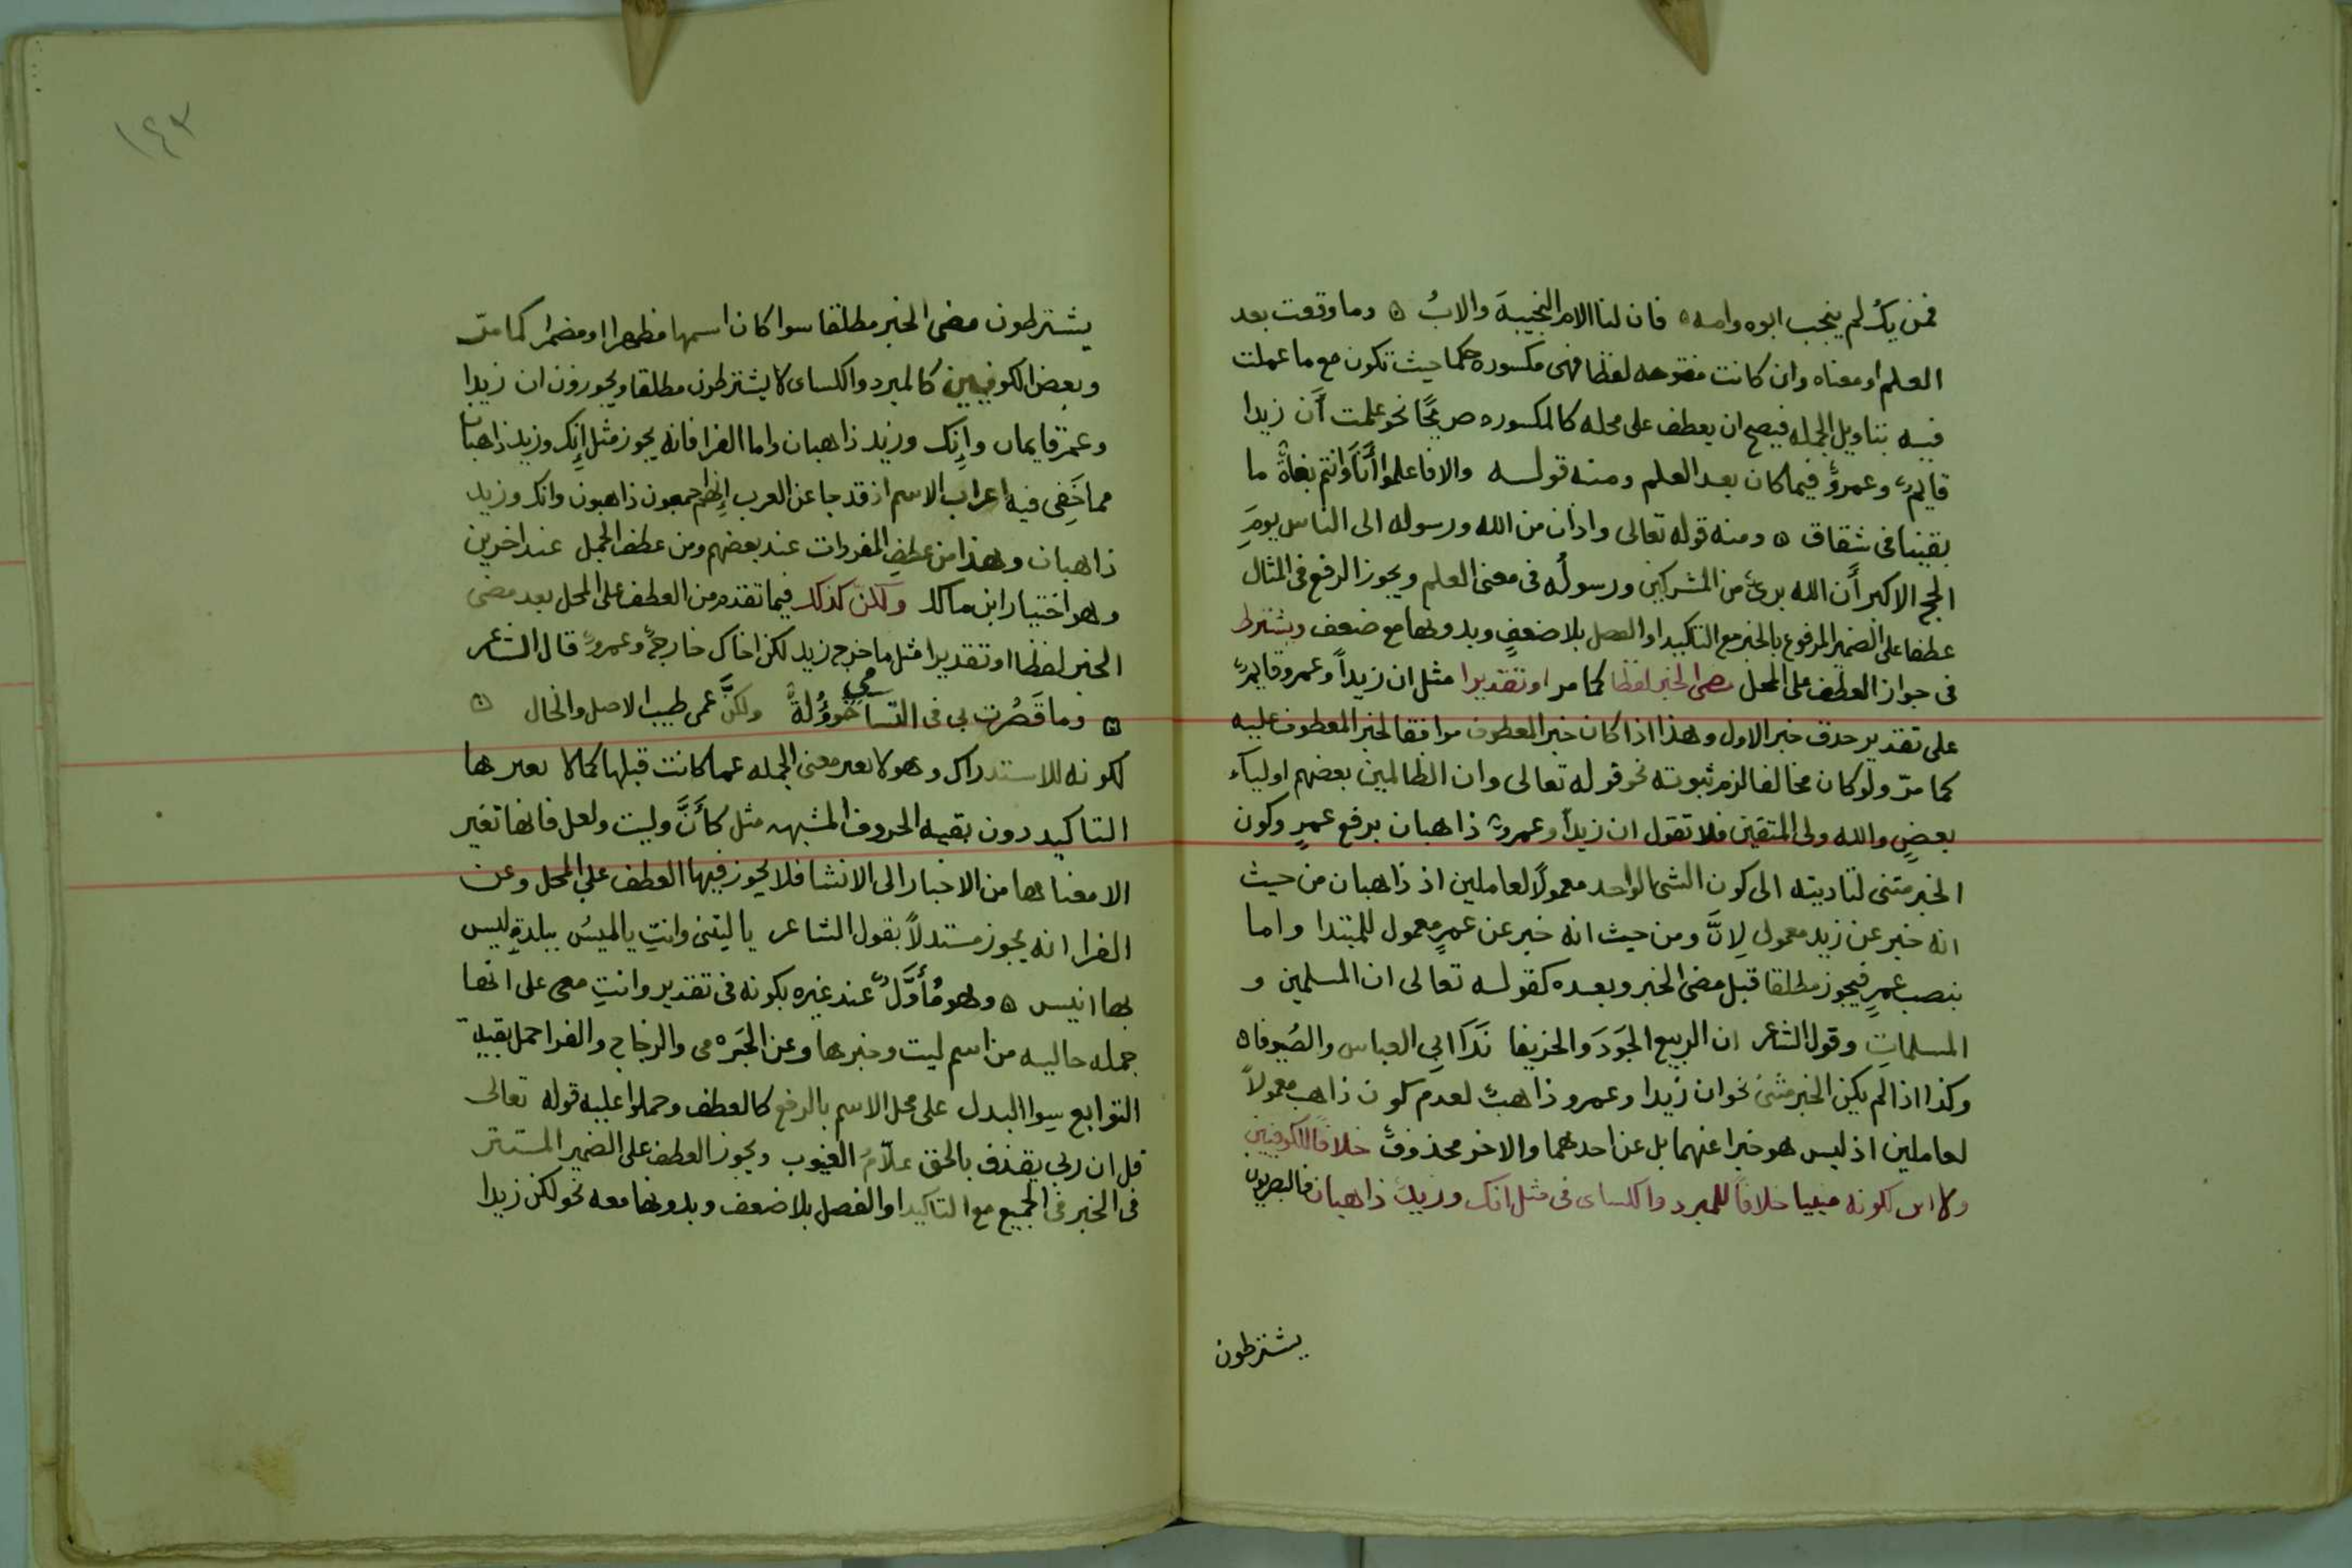 فمن يك لم ينجب ابوه وامه ۵ فان لنا الام النجيبةَ والابُ ۵ وما وقعت بعد
العلم او معناه وان كانت مفتوحه لفظا فهى مكسوره حكما حيث تكون مع ما عملت
فيه بتاويل الجمله فيصح ان يعطف على محله كالمكسوره صريحًا نحو علمت أَن زيدا
قايمٌ وعمروٌ فيما كان بعد العلم ومنه قولـه والا فاعلموا أَنَّا وَانتم بغاةٌ ما
بقينا فى شقاق ۵ ومنه قوله تعالى واذان من الله ورسوله الى الناس يومَ
الحج الاكبر أَن الله برىٌ من المشركين ورسولُه فى معنى العلم ويجوز الرفع فى المثال
عطفا على الضمير المرفوع بالخبر مع التاكيد او الفصل بلا ضعفٍ وبدونها مع ضعف ويشترط
فى جواز العطف على المحل مضى الخبر لفظا كما مر او تقديرا مثل ان زيداً وعمرو قايمٌ
على تقدير حذف خبر الاول وهذا اذا كان خبر المعطوف موافقا لخبر المعطوف عليه
كما مرّ ولو كان مخالفا لزم ثبوته نحو قوله تعالى وان الظالمين بعضهم اولياء
بعضٍ والله ولى المتقين فلا تقول ان زيداً وعمروٌ ذاهبان برفع عمرٍ وكون
الخبر مثنى لتاديته الى كون الشى الواحد معمولًا لعاملين اذ ذاهبان من حيث
انه خبر عن زيد معمول لِانَّ ومن حيث انه خبر عن عمرٍ معمول للمبتدا واما
بنصب عمرٍ فيجوز مطلقا قبل مضى الخبر وبعده كقولـه تعالى ان المسلمين و
المسلماتِ وقول الشاعر ان الربيع الجَودَ والخريفا نَدَا ابي العباس والصُيوفا ۵
وكذا اذا لم يكن الخبر مثنىً نحو ان زيدا وعمرو ذاهبٌ لعدم كون ذاهب معمولاً
لعاملين اذ ليس هو خبرا عنهما بل عن احدهما والاخر محذوفٌ خلافًا للكوفيين
ولا اثر لكونه مبنيا خلافًا للمبرد والكساى فى مثل انك وزيدٌ ذاهبان فالبصريون
يشترطون
١٤٣
يشترطون مضى الخبر مطلقا سوا كان اسمها مظهرا او مضمرا كما مرّ
وبعض الكوفيين كالمبرد والكساى لا يشترطون مطلقا ويجوزون ان زيدا
وعمرٌ قايمان وإِنك وزيد ذاهبان واما الفرا فانه يجوز مثل إِنك وزيد ذاهبان
مما خَفِى فيه اعراب الاسم اذ قد جا عن العرب إِنهم اجمعون ذاهبون وانك وزيد
ذاهبان وهذا من عطف المفردات عند بعضهم ومن عطف الجمل عند اخرين
وهو اختيار ابن مالك ولكنّ كذلك فيما تقدم من العطف على المحل بعد مضى
الخبر لفظا او تقديرا مثل ما خرج زيد لكن اخاك خارجٌ وعمروٌ قال الشاعر
۵ وما قَصُرت بى فى التسامي خؤُولةٌ ولكنَّ عمى طيب الاصل والخال ۵
لكونه للاستدراك وهو لا يغير معنى الجمله عما كانت قبلها كما لا يغيرها
التاكيد دون بقيه الحروف المشبهه مثل كأَنَّ وليت ولعل فانها تغير
الا معناها من الاخبار الى الانشا فلا يجوز فيها العطف على المحل وعن
الفرا انه يجوز مستدلاً بقول الشاعر يا ليتنى وانتِ يا لميسُ ببلدةٍ ليس
بها انيس ۵ وهو مُأَوَّلٌ عند غيره بكونه فى تقدير وانتِ معى على انها
جمله حاليه من اسم ليت وخبرها وعن الجَرمى والزجاج والفرا حمل بقيةِ
التوابع سوا البدل على محل الاسم بالرفع كالعطف وحملوا عليه قوله تعالى
قل ان ربي يقذف بالحق علّامُ الغيوب ويجوز العطف على الضمير المستتر
فى الخبر فى الجميع مع التاكيد او الفصل بلا ضعف وبدونها معه نحو لكن زيدا